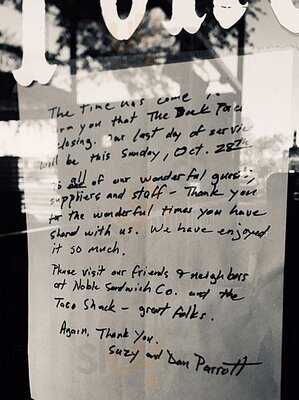 The Time has come
you that The Duck Pond
closing. Our last day of service
will be this Sunday, Oct. 28th
To all of our wonderful guests,
suppliers and staff - Thank you
for the wonderful times you have
shared with us. We have enjoyed
it so much.
Please visit our friends & neighbors
at Noble Sandwich Co. and the
Taco Shack - great folks.
Again, Thank You.
Suzy and Dan Parrott